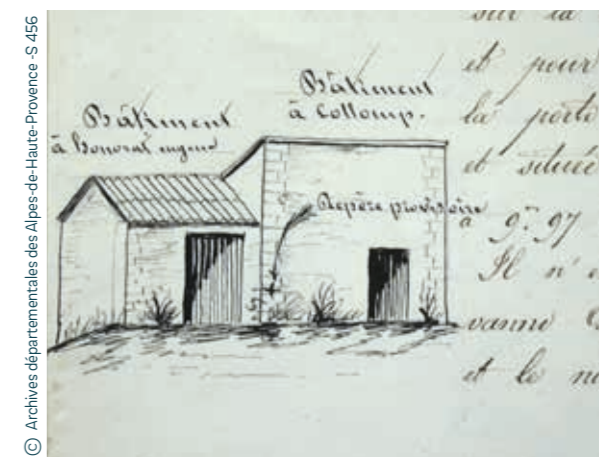 © Archives départementales des Alpes-de-Haute-Provence -S 456
Bâtiment
à Honorat eugene
Bâtiment
à Collomp.
Repère provisoire
sur la
et pour
la porte
et située
à 9m. 97
Il n'
vanne
et le